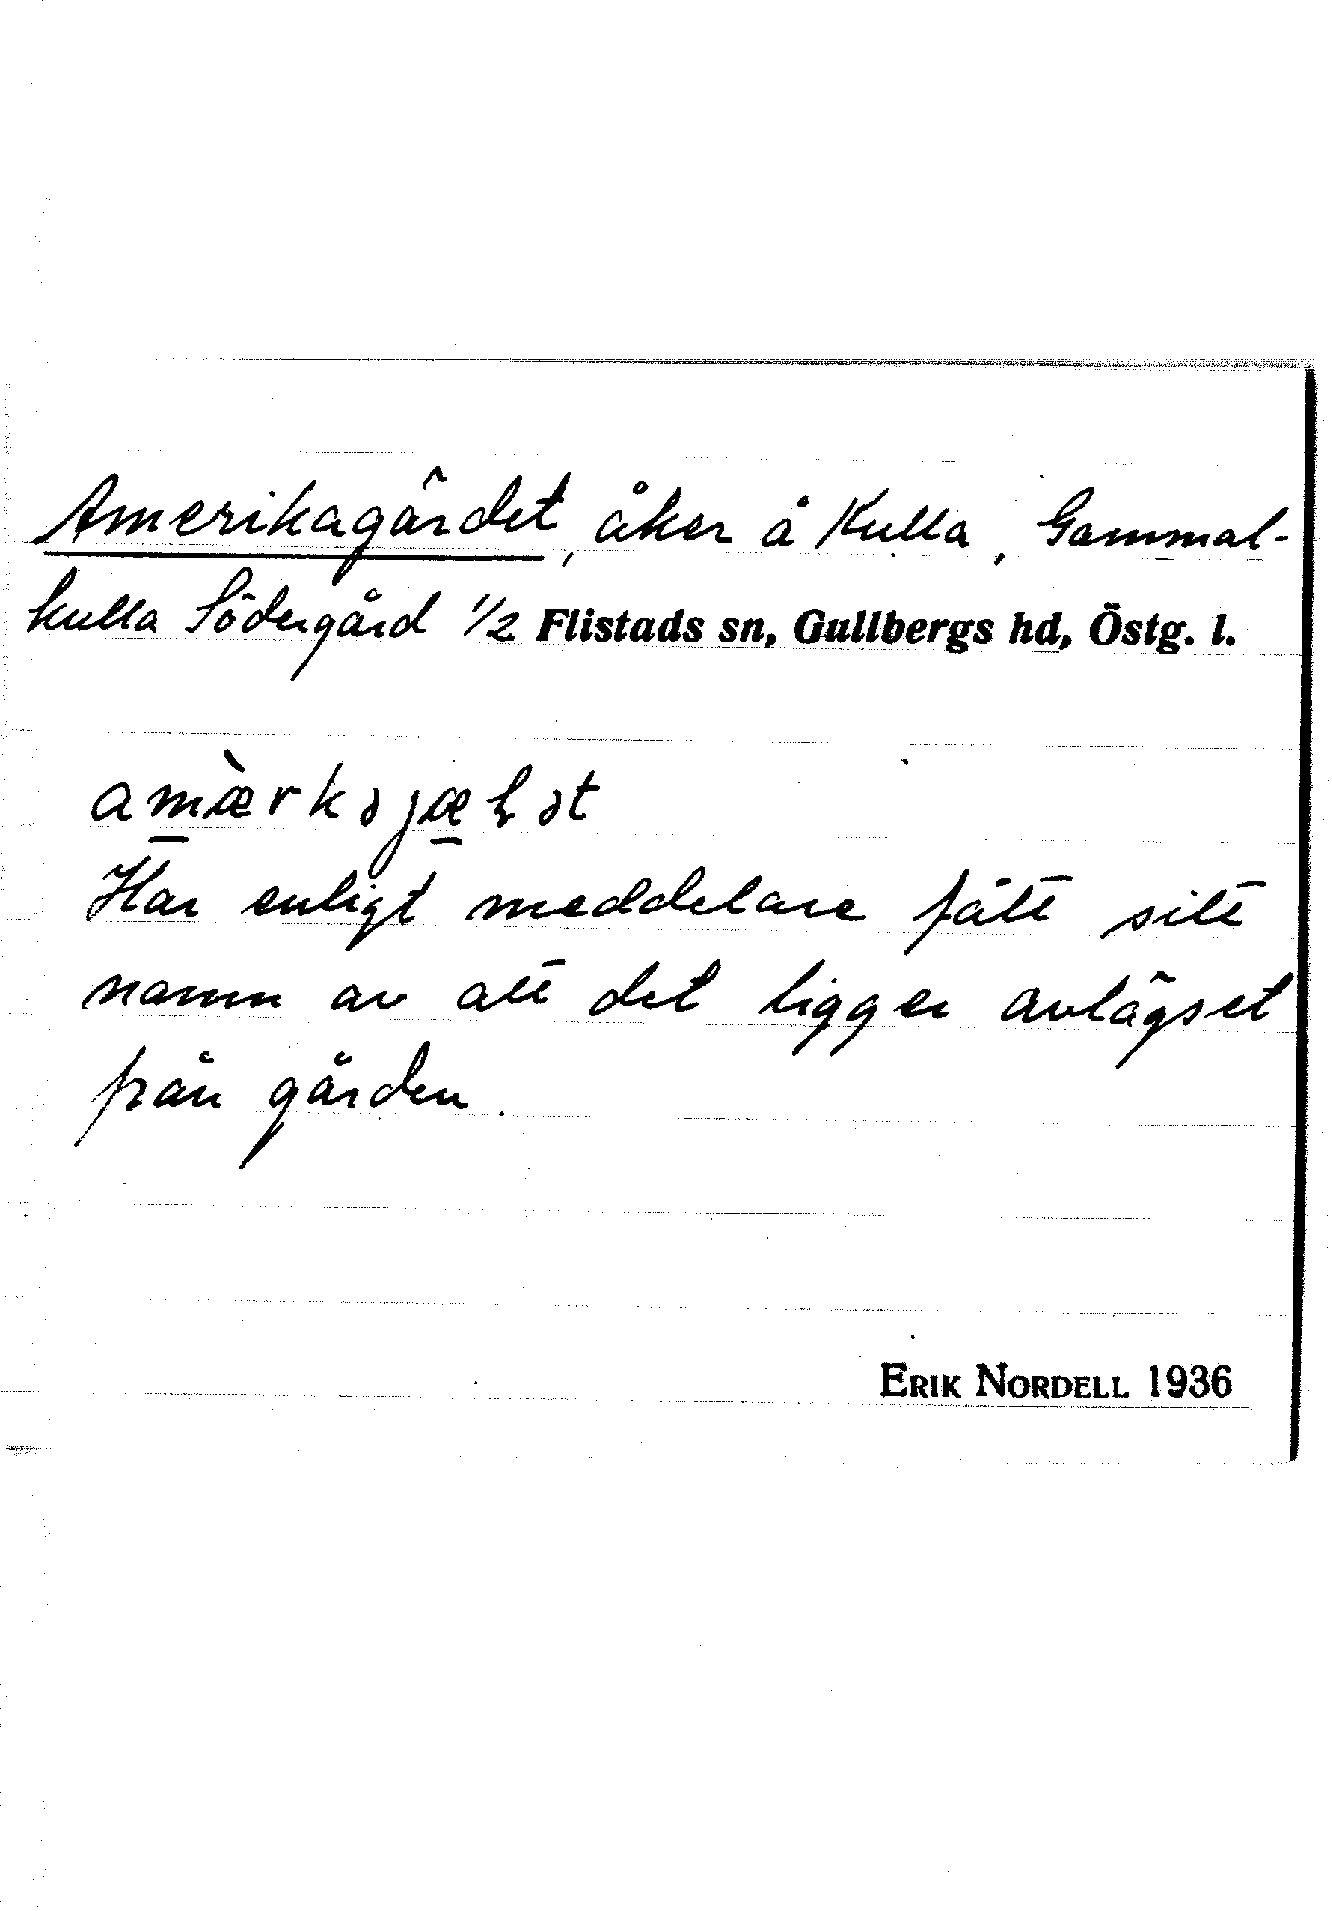 Amerikagärdet, åker å Kulla, Gammal-
kulla Södergård 1/2 Flistads sn, Gullbergs hd, Östg. l.
amærkəjæɽət
Har enligt meddelare fått sitt
namn av att det ligger avlägset
från gården.
ERIK NORDELL 1936